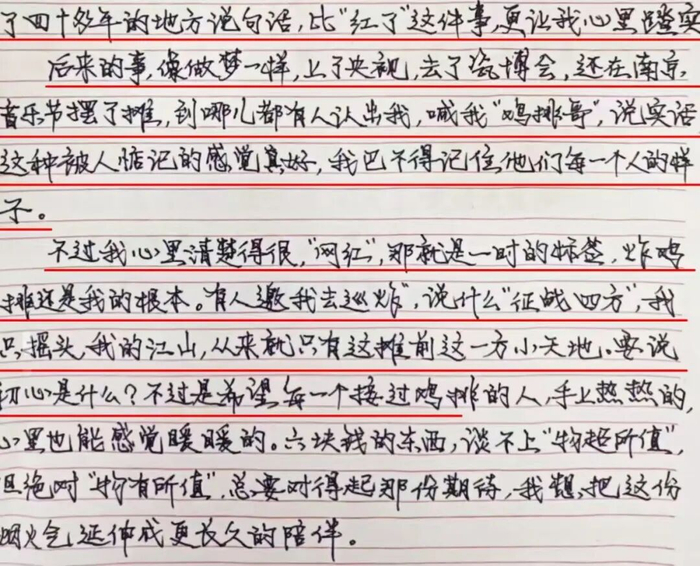 了四十多年的地方说句话，比“红了”这件事，更让我心里踏实
后来的事，像做梦一样，上了央视，去了瓷博会，还在南京，
音乐节摆了摊，到哪儿都有人认出我，喊我“鸡排哥”，说实话
这种被人惦记的感觉真好，我巴不得记住他们每一个人的样
子。
不过我心里清楚得很，“网红”，那就是一时的标签，炸鸡
排还是我的根本。有人邀我去巡炸”，说什么“征战四方”，我
只摇头，我的江山，从来就只有这摊前这一方小天地。要说
初心是什么？不过是希望每一个接过鸡排的人，手上热热的，
心里也能感觉暖暖的。六块钱的东西，谈不上“物超所值”，
但绝对“物有所值”，总要对得起那份期待，我想，把这份
烟火气，延伸成更长久的陪伴。